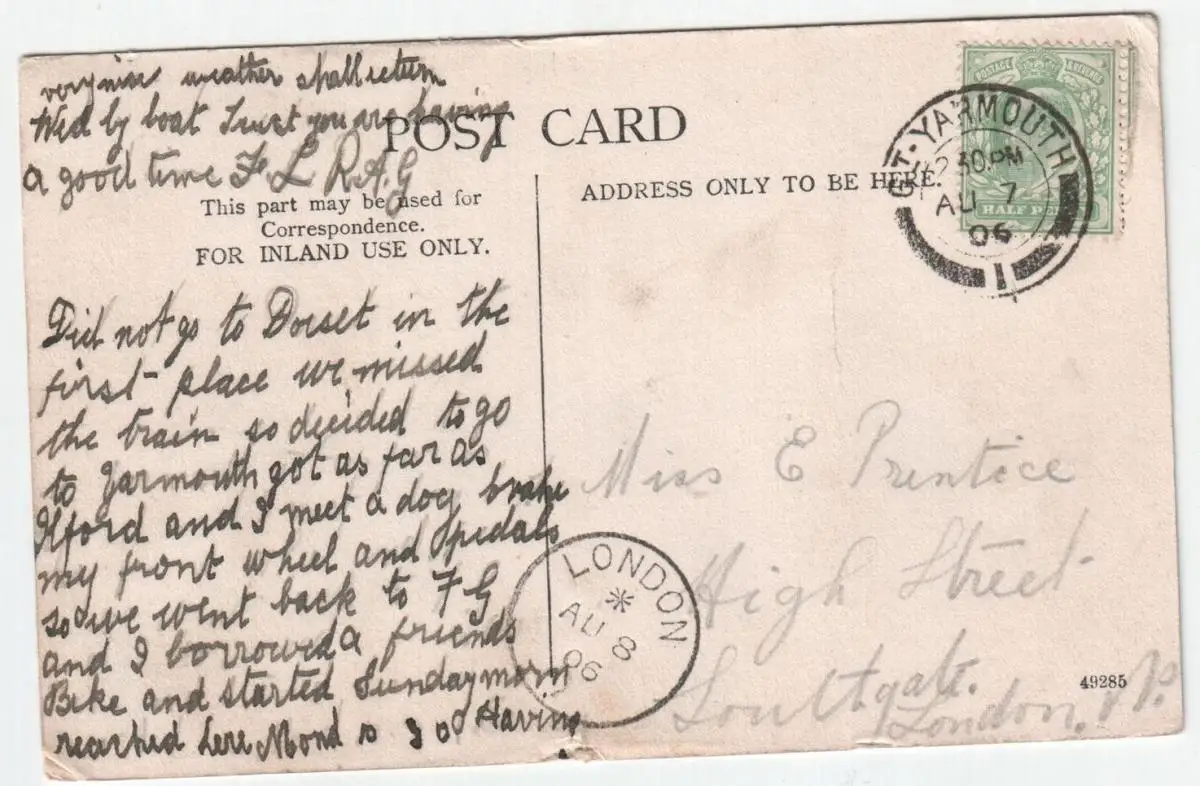 very nice weather shall return
Wed by boat Trust you are having
a good time F. L R.A.G
POST CARD
This part may be used for
Correspondence.
FOR INLAND USE ONLY.
ADDRESS ONLY TO BE HERE.
POSTAGE & REVENUE
HALF PE
GT. YARMOUTH
12.30.PM
AU 7
06
1
Did not go to Dorset in the
first place we missed
the train so decided to go
to Yarmouth got as far as
Ilford and I meet a dog broke
my front wheel and pedals
so we went back to F G
and I borrowed a friends
Bike and started Sunday morn
reached here Mond Having
LONDON
AU 8
06
Miss E Prentice
High Street
Southgate.
London. N.
49285